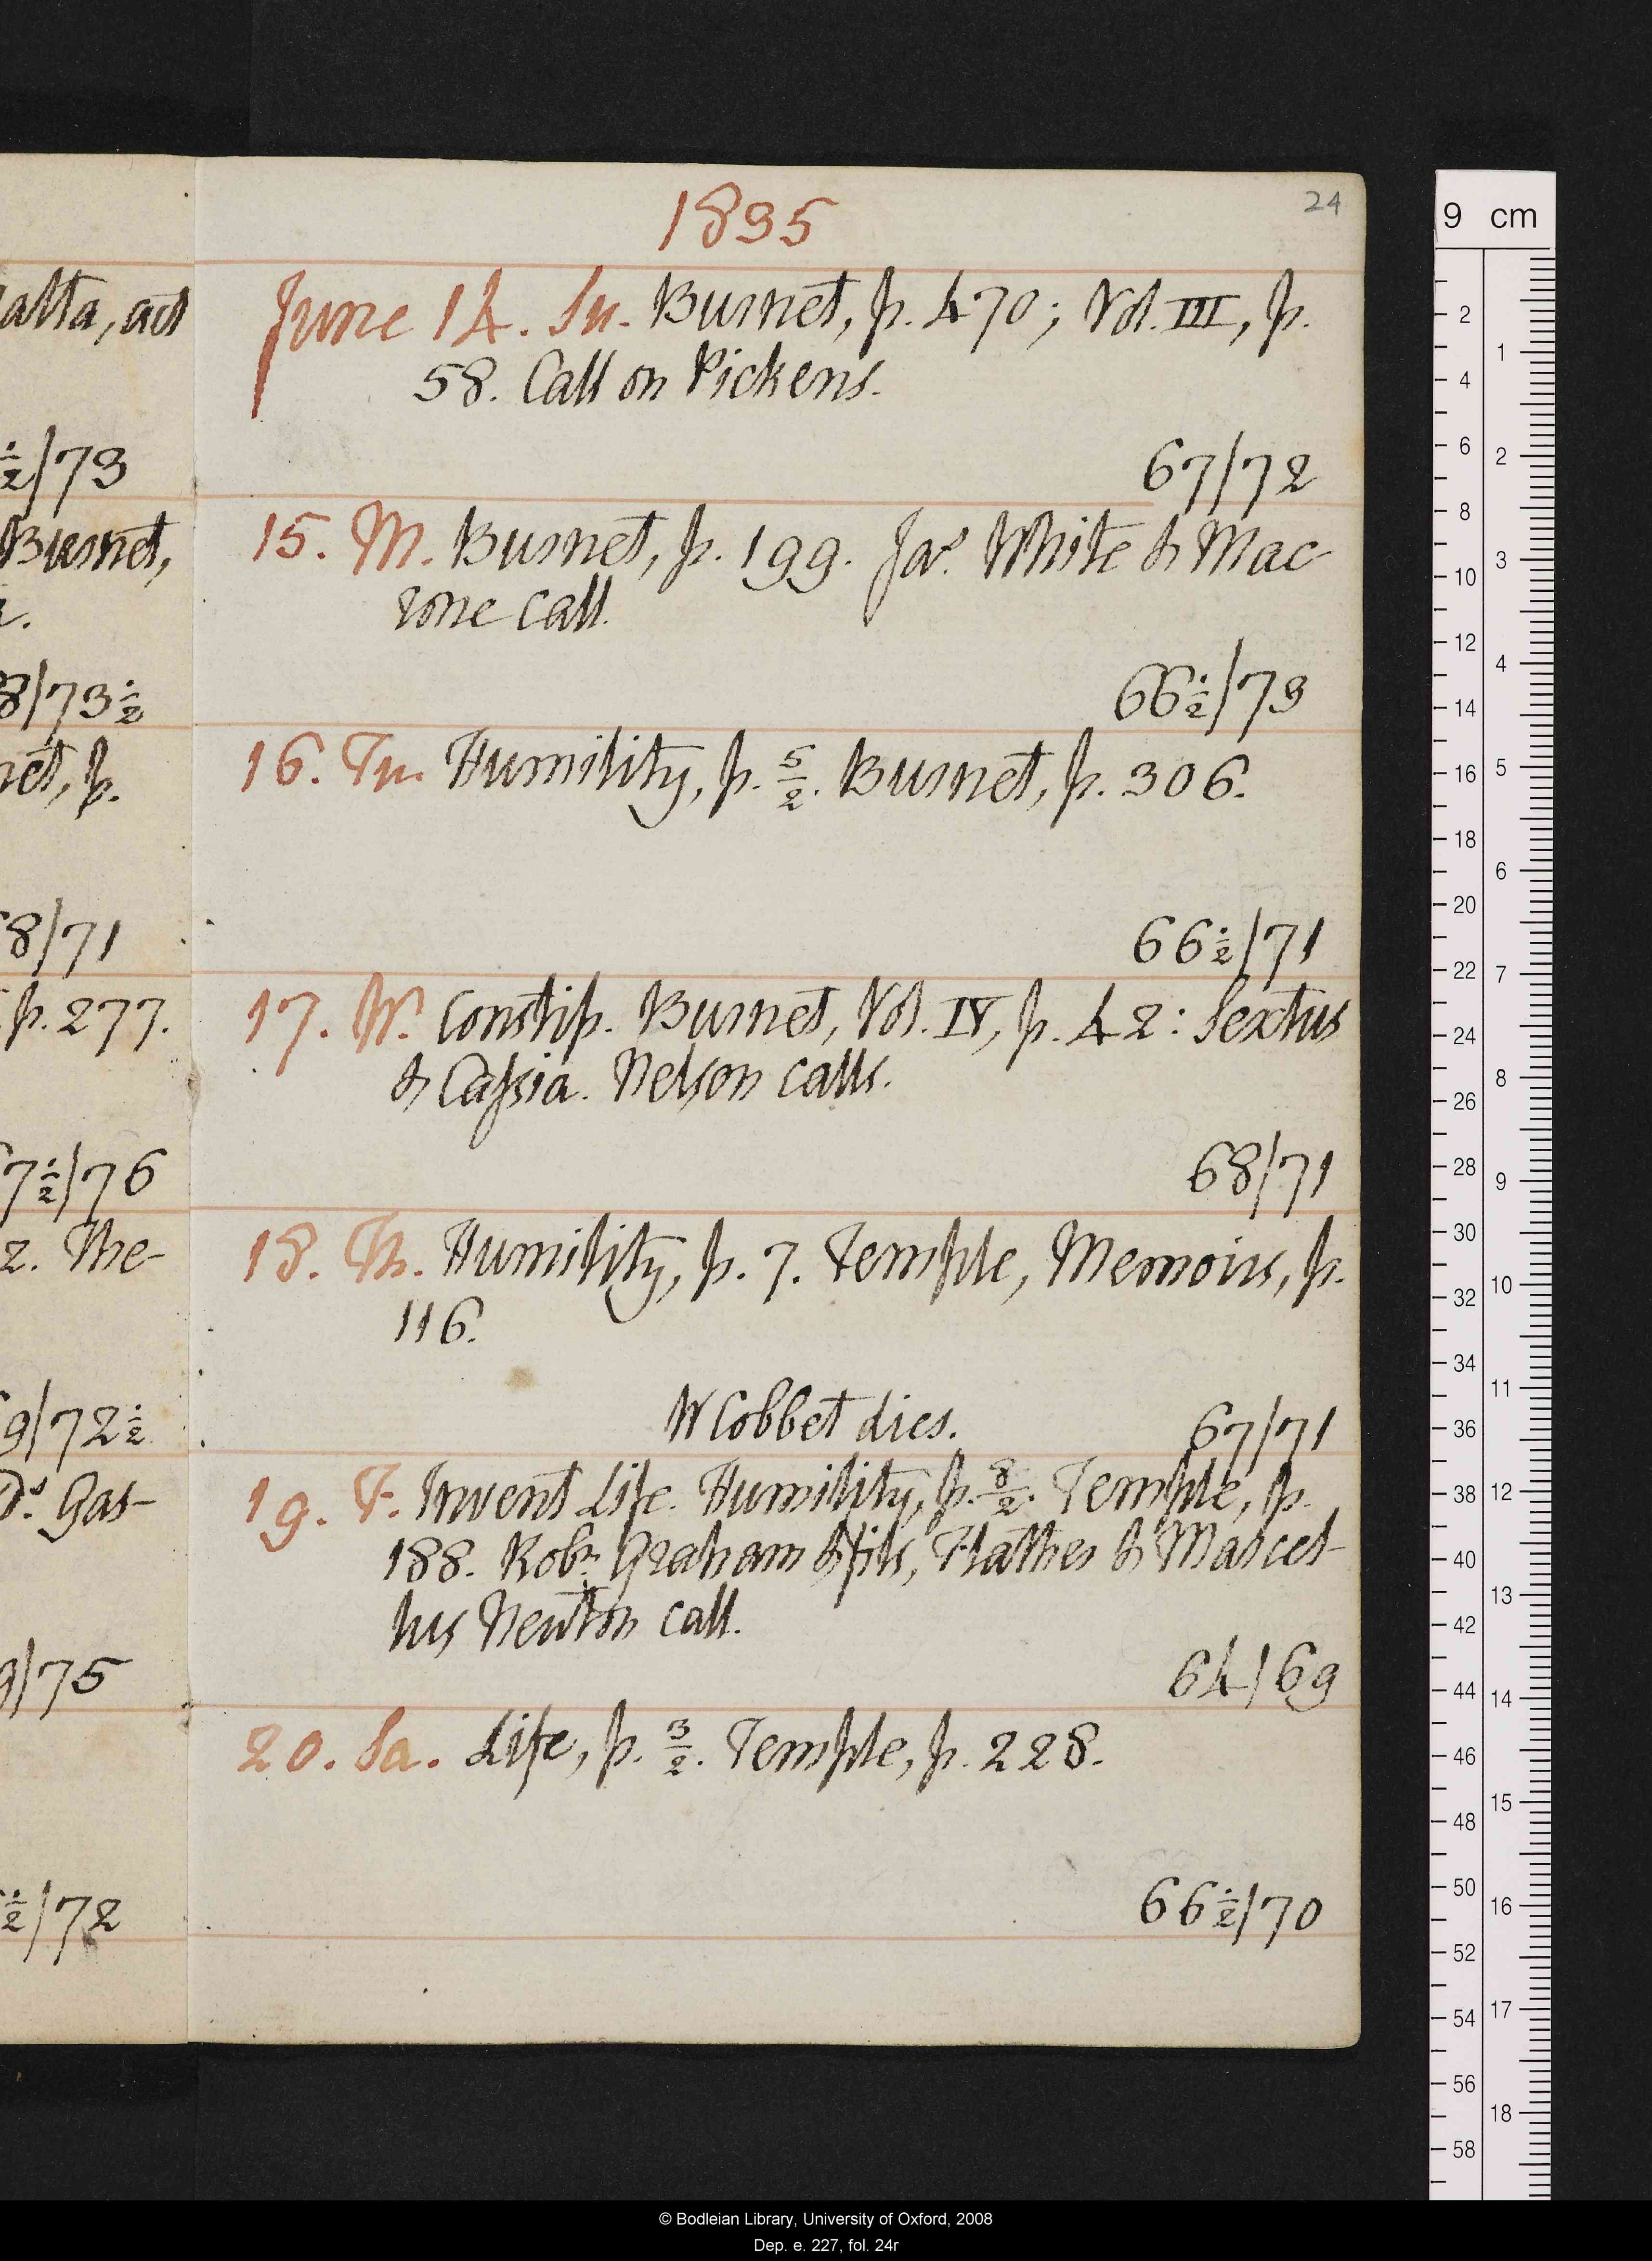 1835
24
June 14. Su. Burnet, p. 470; Vol. III, p.
58. Call on Pickens.
67/72
15. M. Burnet, p. 199. Jas White & Mac
rone call.
66½/73
16. Tu. Humility, p. 5/2. Burnet, p. 306.
66½/71
17. W. Constip. Burnet, Vol. IV, p. 42: Sextus
& Cassia. Nelson calls.
68/71
18. Th. Humility, p. 7. Temple, Memoirs, p.
116.
W Cobbet dies.
67/71
19. F. Invent Life. Humility, p. 8/2. Temple, p.
188. Robt Graham & fils, Hather & Marcel-
lus Newton call.
64/69
20. Sa. Life, p. 3/2. Temple, p. 228.
66½/70
alta, act
½/73
Burnet,
8/73½
net, p.
8/71
p. 277.
7½/76
2. The-
9/72½
Ds. Gas-
9/75
½/72
9 cm
2
4
6
8
10
12
14
16
18
20
22
24
26
28
30
32
34
36
38
40
42
44
46
48
50
52
54
56
58
1
2
3
4
5
6
7
8
9
10
11
12
13
14
15
16
17
18
© Bodleian Library, University of Oxford, 2008
Dep. e. 227, fol. 24r